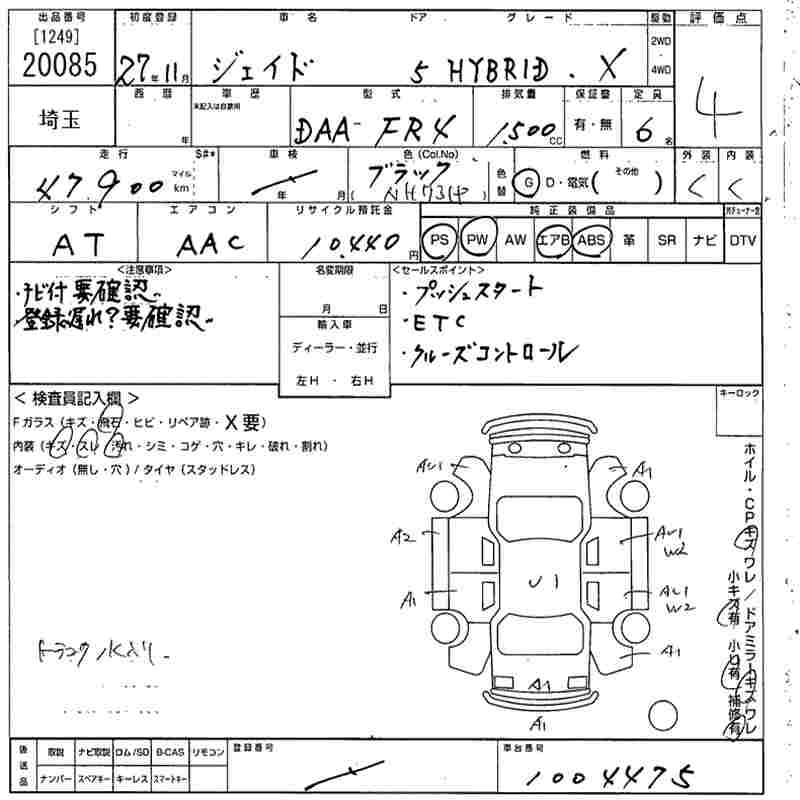 出品番号 初度登録 車名 ドア グレード 駆動 評価点
[1249]
20085 27年11月 ジェイド 5 HYBRID・X 2WD・4WD 4
埼玉 西暦 年 車歴 型式 排気量 保証書 定員
未記入は自家用
DAA-FR4 1,500cc 有・無 6名
走行 S#* 車検 色(Col.No) 色替 燃料 外装 内装
47,900 マイル km 年 月 ブラック (NH731P) G D・電気( その他 ) C C
シフト エアコン リサイクル預託金 純正装備品
AT AAC 10,440円 PS PW AW エアB ABS 革 SR ナビ DTV
<注意事項> 名変期限 <セールスポイント>
・ナビ付要確認。
登録遅れ?要確認。
月 日
輸入車
ディーラー・並行
左H・右H
・プッシュスタート
・ETC
・クルーズコントロール
<検査員記入欄> キーロック
Fガラス(キズ・飛石・ヒビ・リペア跡・X要)
内装(キズ・スレ・汚れ・シミ・コゲ・穴・キレ・破れ・割れ)
オーディオ(無し・穴)/タイヤ(スタッドレス)
AU1 A1
A2 AU1
W2
A1 U1 AU1
W2
A1
A1
A1
ホイル・CPキズワレ/ドアミラーキズワレ
小キズ有 小凹有 補修有
後送品 取説 ナビ取説 ロム/SD B-CAS リモコン 登録番号 車台番号
ナンバー スペアキー キーレス スマートキー 1004475